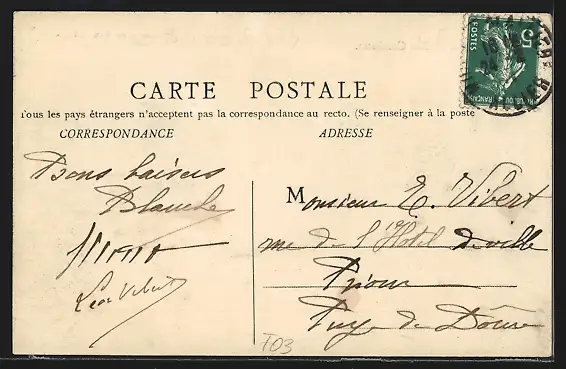 CARTE POSTALE
Tous les pays étrangers n'acceptent pas la correspondance au recto. (Se renseigner à la poste
CORRESPONDANCE
ADRESSE
Bons baisers
Blanche
Léon Vibert
Monsieur E. Vibert
rue de l'Hôtel de ville
Riom
Puy de Dôme
5
POSTES
T03